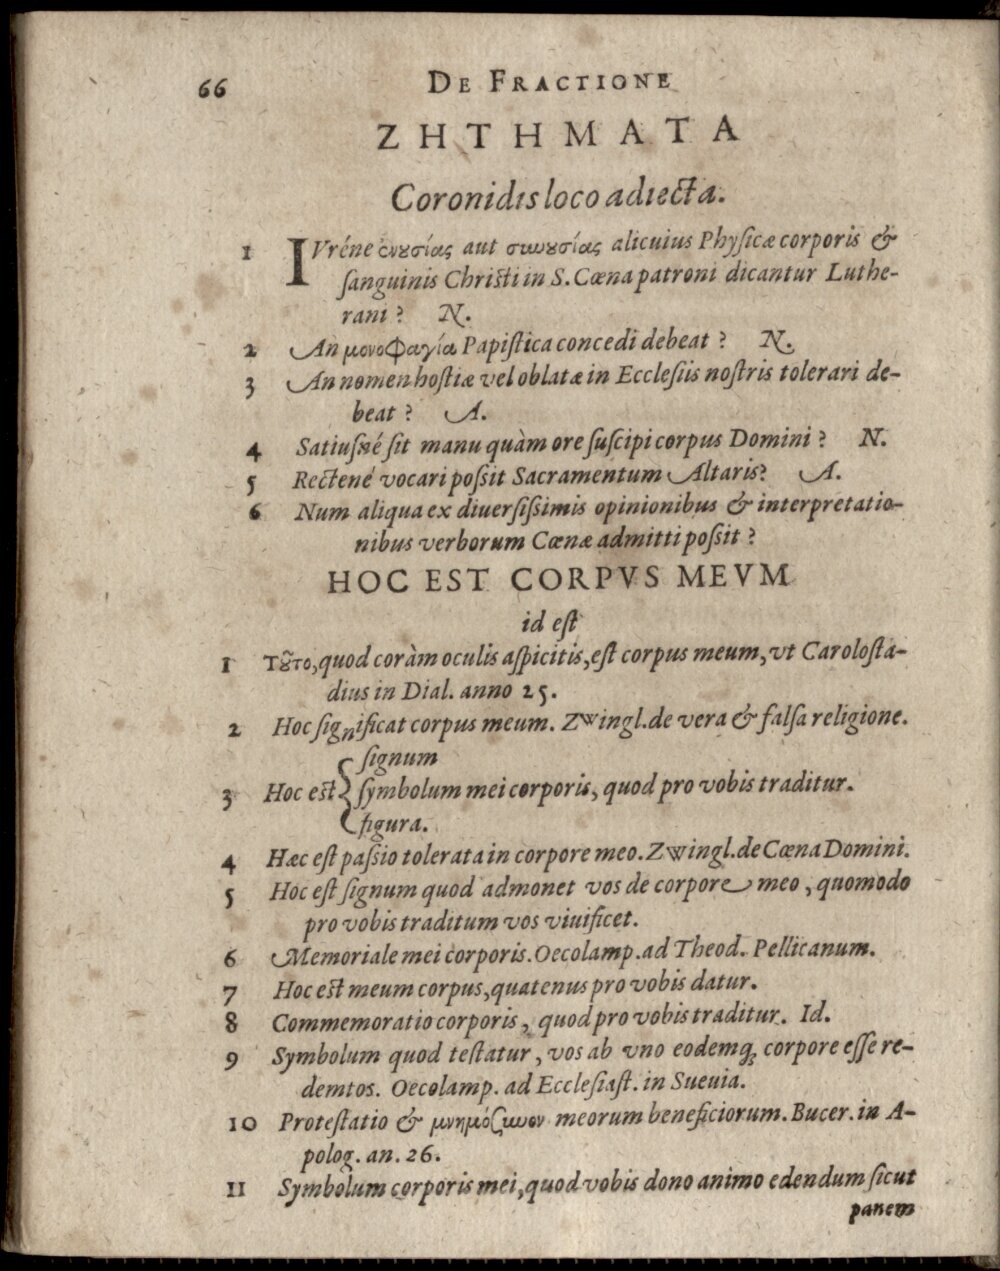 66 DE FRACTIONE
ΖΗΤΗΜΑΤΑ
Coronidis loco adiecta.
1 IVréne ἐνȣσίας aut συνȣσίας alicuius Physicæ corporis &
sanguinis Christi in S. Cœna patroni dicantur Luthe-
rani? N.
2 An μονοφαγία Papistica concedi debeat? N.
3 An nomen hostiæ vel oblatæ in Ecclesiis nostris tolerari de-
beat? A.
4 Satiusné sit manu quàm ore suscipi corpus Domini? N.
5 Rectené vocari possit Sacramentum Altaris? A.
6 Num aliqua ex diuersissimis opinionibus & interpretatio-
nibus verborum Cœnæ admitti possit?
HOC EST CORPVS MEVM
id est
1 Τȣ͂το, quod coràm oculis aspicitis, est corpus meum, vt Carolosta-
dius in Dial. anno 25.
2 Hoc significat corpus meum. Zwingl. de vera & falsa religione.
signum
3 Hoc est { symbolum mei corporis, quod pro vobis traditur.
figura.
4 Hæc est passio tolerata in corpore meo. Zwingl. de Cœna Domini.
5 Hoc est signum quod admonet vos de corpore meo, quomodo
pro vobis traditum vos viuificet.
6 Memoriale mei corporis. Oecolamp. ad Theod. Pellicanum.
7 Hoc est meum corpus, quatenus pro vobis datur.
8 Commemoratio corporis, quod pro vobis traditur. Id.
9 Symbolum quod testatur, vos ab vno eodemq; corpore esse re-
demtos. Oecolamp. ad Ecclesiast. in Sueuia.
10 Protestatio & μνημόζωον meorum beneficiorum. Bucer. in A-
polog. an. 26.
11 Symbolum corporis mei, quod vobis dono animo edendum sicut
panem